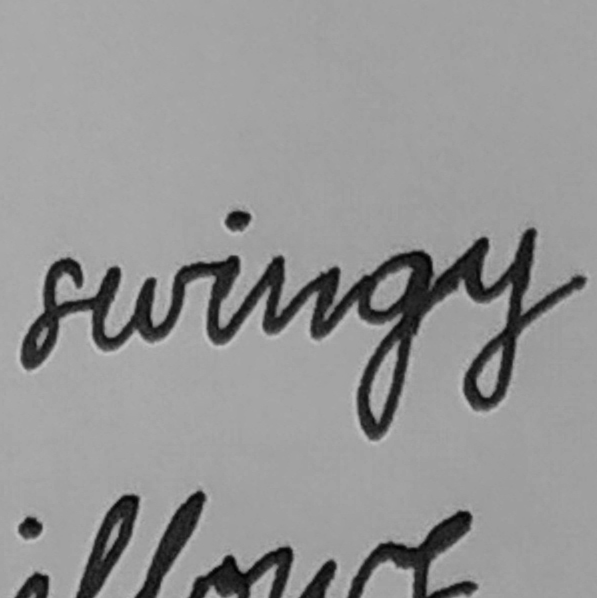 swingy
illows